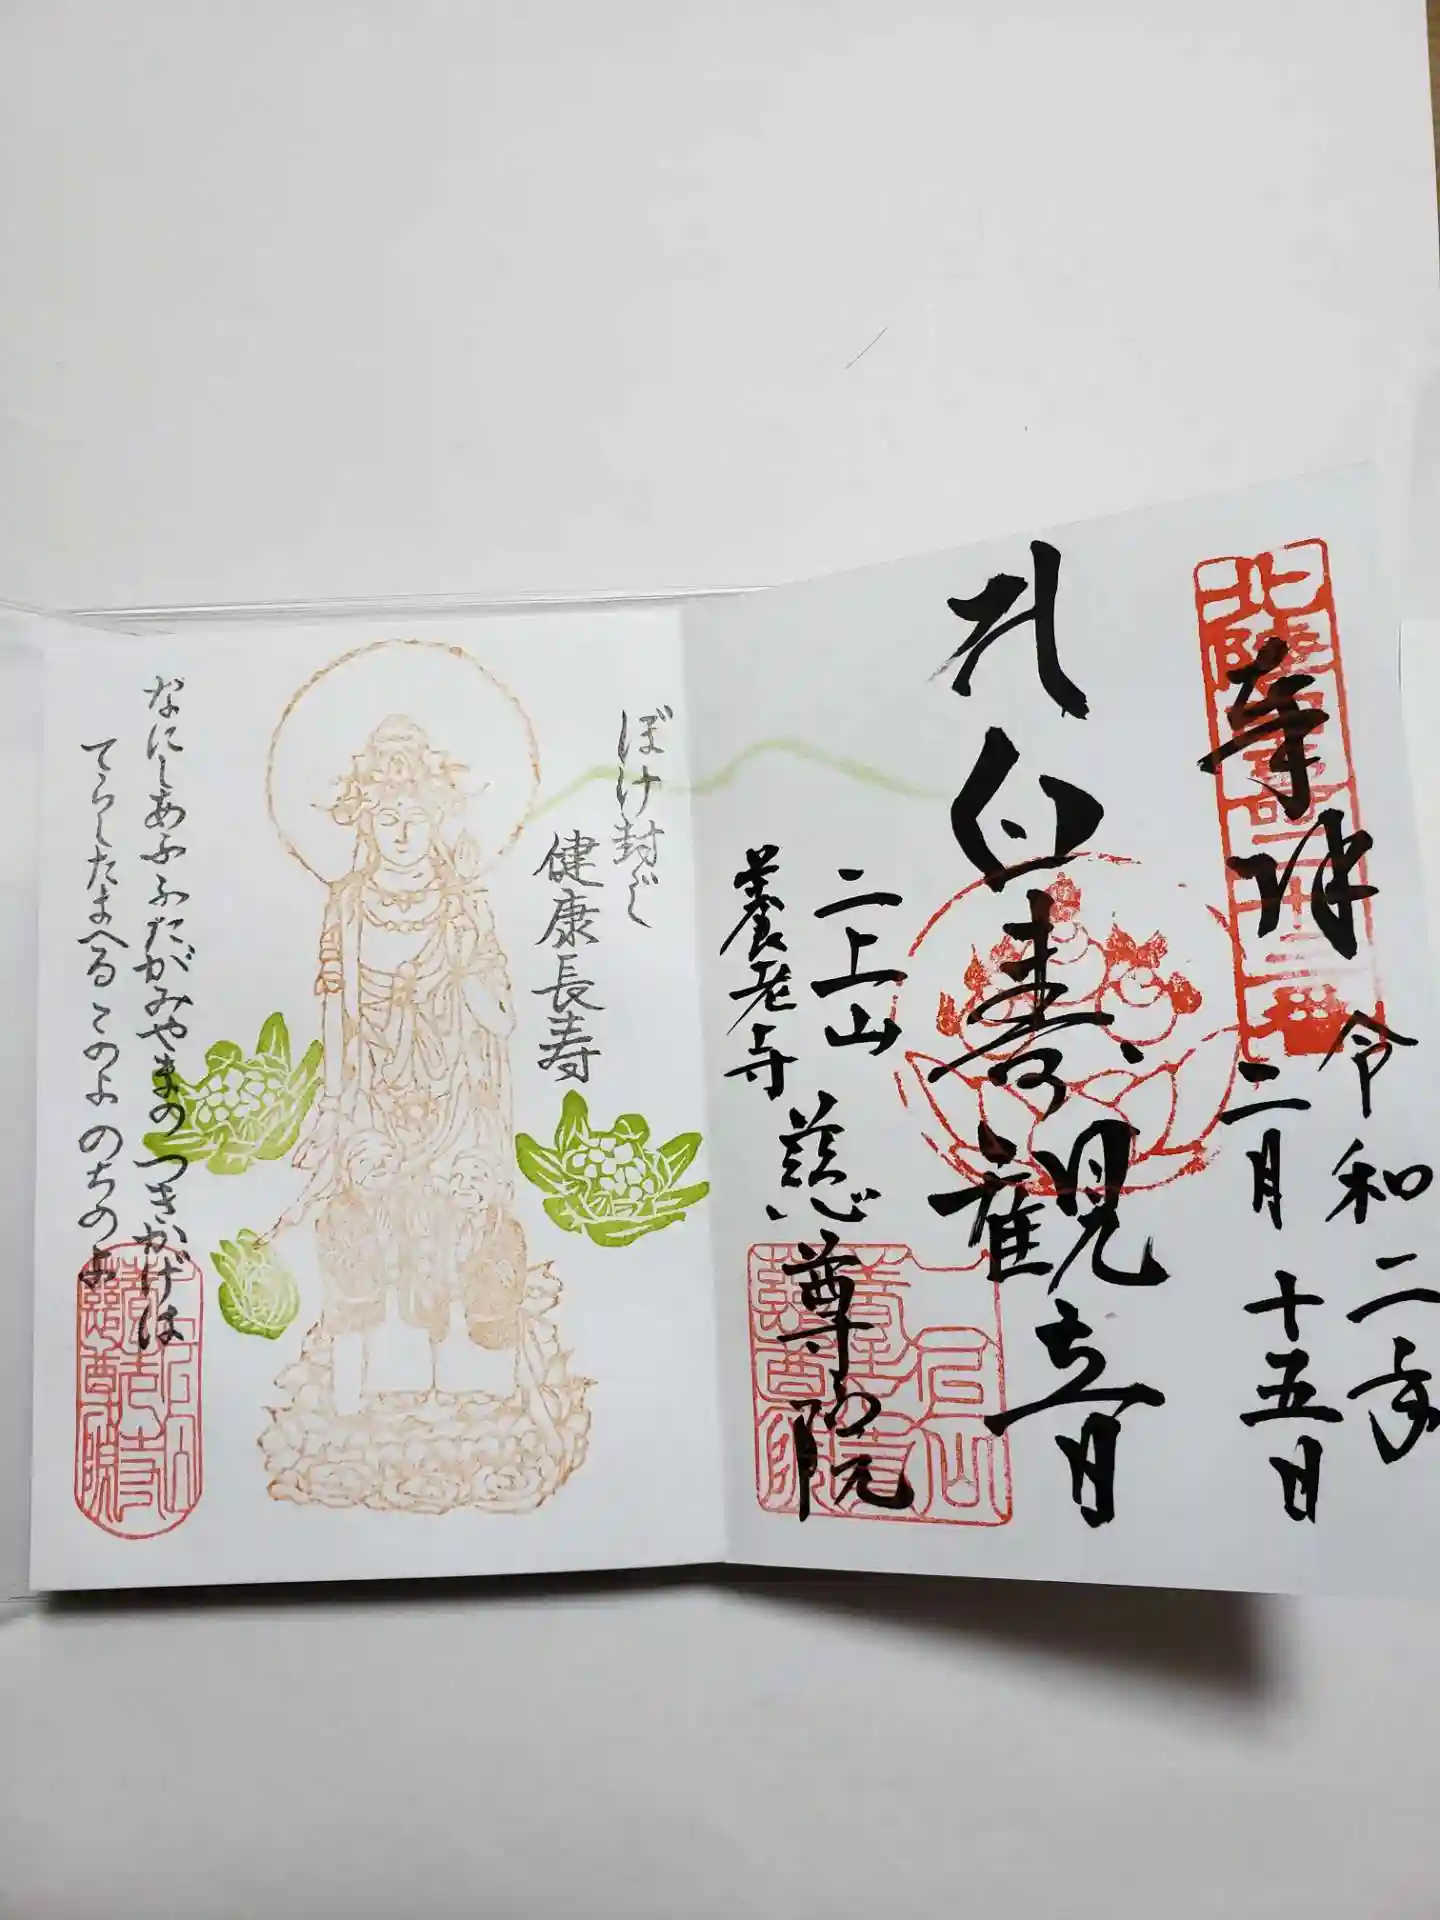 奉拝
令和二年
二月十五日
白寿観音
二上山
養老寺
慈尊院
ぼけ封じ
健康長寿
なにしあふふたがみやまのつきかげは
てらしたまへるこのよのちのよ